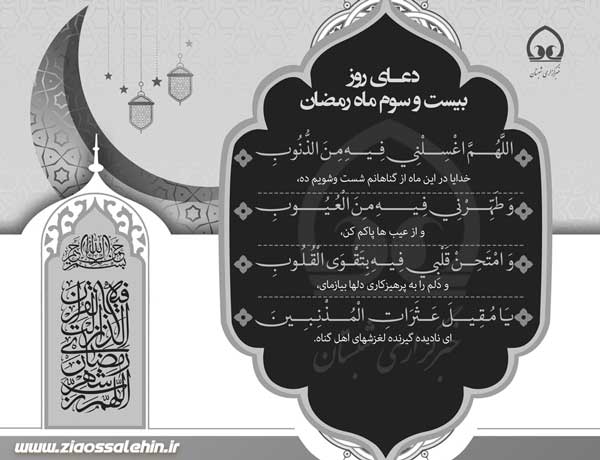 خبرگزاری شبستان
دعـای روز
بیست و سوم ماه رمضان
اللَّهُمَّ اغْسِلْنِي فِيهِ مِنَ الذُّنُوبِ
خدایا در این ماه از گناهانم شست وشویم ده،
وَ طَهِّرْنِي فِيهِ مِنَ الْعُيُوبِ
و از عیب ها پاکم کن،
وَ امْتَحِنْ قَلْبِي فِيهِ بِتَقْوَى الْقُلُوبِ
و دَلم را به پرهیزکاری دلها بیازمای،
يَا مُقِيلَ عَثَرَاتِ الْمُذْنِبِينَ
ای نادیده گیرنده لغزشهای اهل گناه.
خبرگزاری شبستان
بسم الله الرحمن الرحیم
اللهم رب شهر
رمضان
الذی انزلت
فیه القرآن
www.ziaossalehin.ir